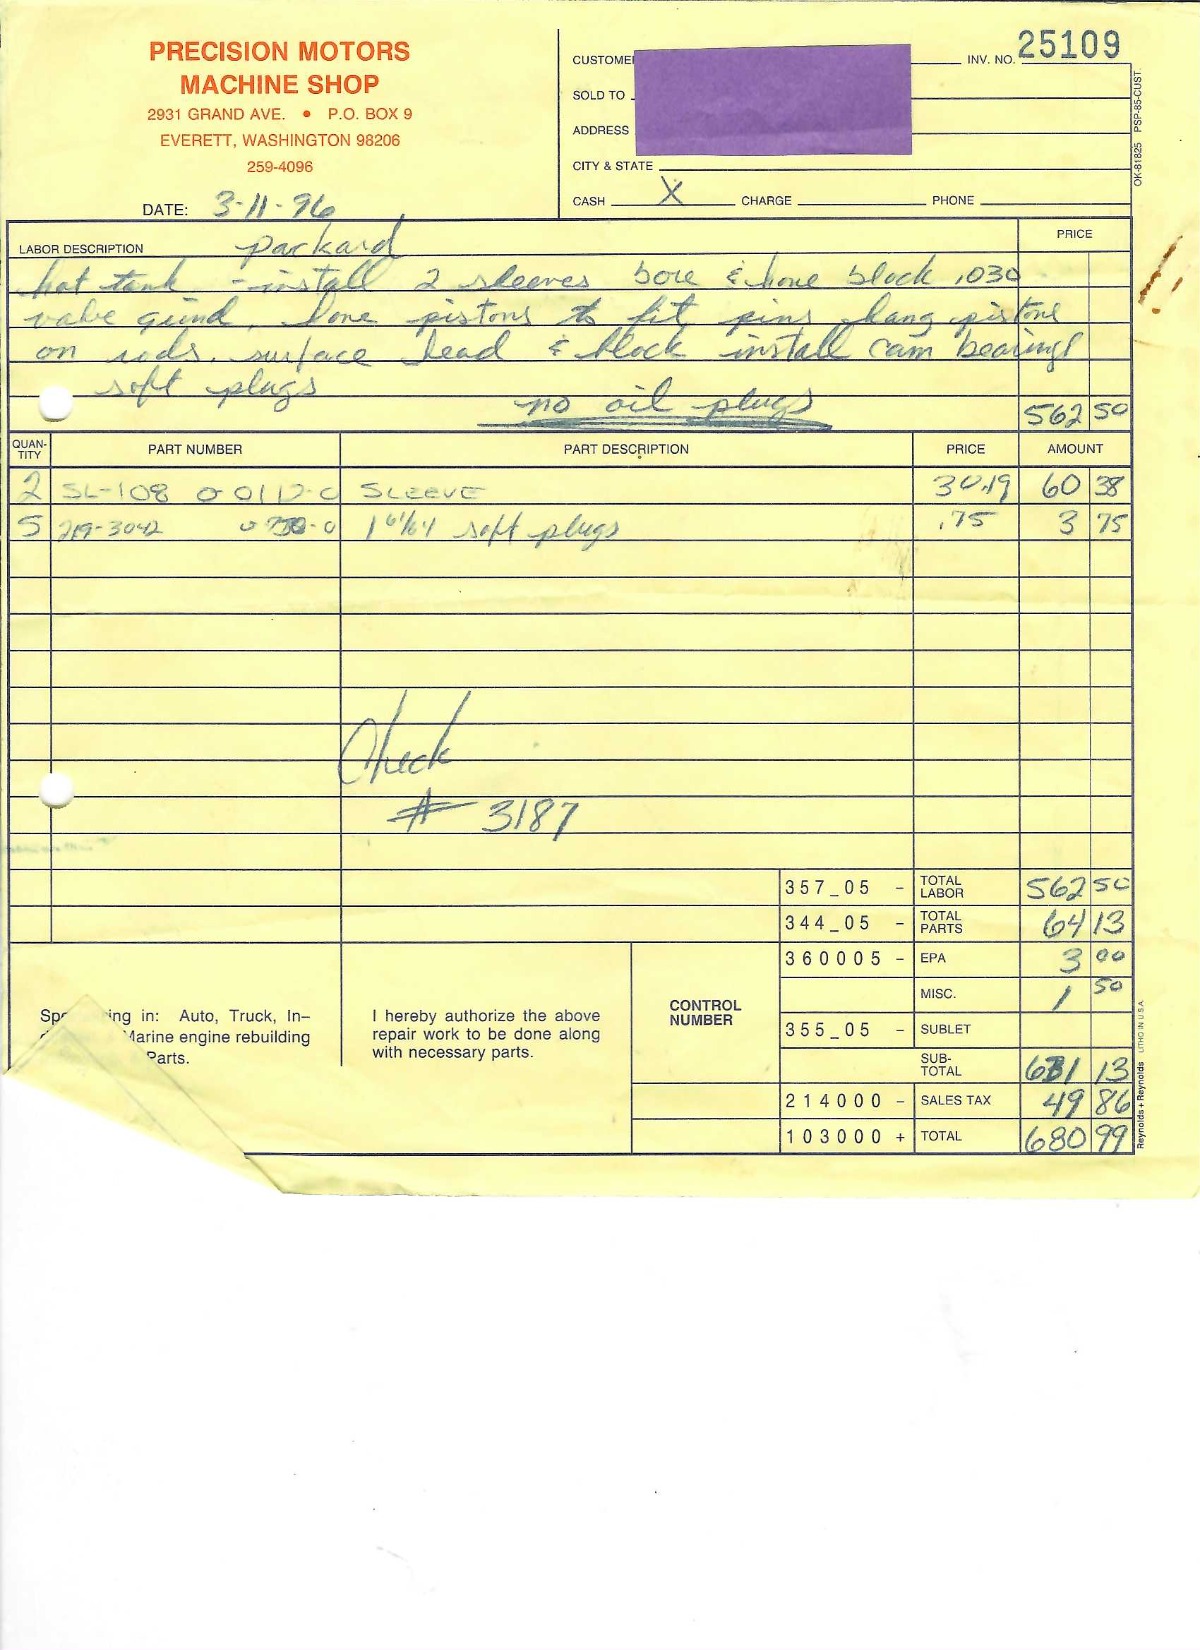 PRECISION MOTORS
MACHINE SHOP
2931 GRAND AVE. • P.O. BOX 9
EVERETT, WASHINGTON 98206
259-4096
DATE: 3-11-96
CUSTOME
INV. NO. 25109
SOLD TO
ADDRESS
CITY & STATE
CASH X CHARGE PHONE
OK-81825 PSP-85-CUST.
LABOR DESCRIPTION packard
PRICE
hot tank - install 2 sleeves bore & hone block .030
valve grind, hone pistons to fit pins hang pistons
on rods. surface head & block install cam bearings
soft plugs
no oil plugs 562 50
QUAN-
TITY PART NUMBER PART DESCRIPTION PRICE AMOUNT
2 SL-108 0-0112-0 SLEEVE 30.19 60 38
5 219-3042 1 61/64 soft plugs .75 3 75
Check
# 3187
357_05 - TOTAL LABOR 562 50
344_05 - TOTAL PARTS 64 13
360005 - EPA 3 00
MISC. 1 50
355_05 - SUBLET
SUB-
TOTAL 631 13
214000 - SALES TAX 49 86
103000 + TOTAL 680 99
CONTROL
NUMBER
ing in: Auto, Truck, In-
Marine engine rebuilding
Parts.
I hereby authorize the above
repair work to be done along
with necessary parts.
Reynolds + Reynolds LITHO IN U.S.A.